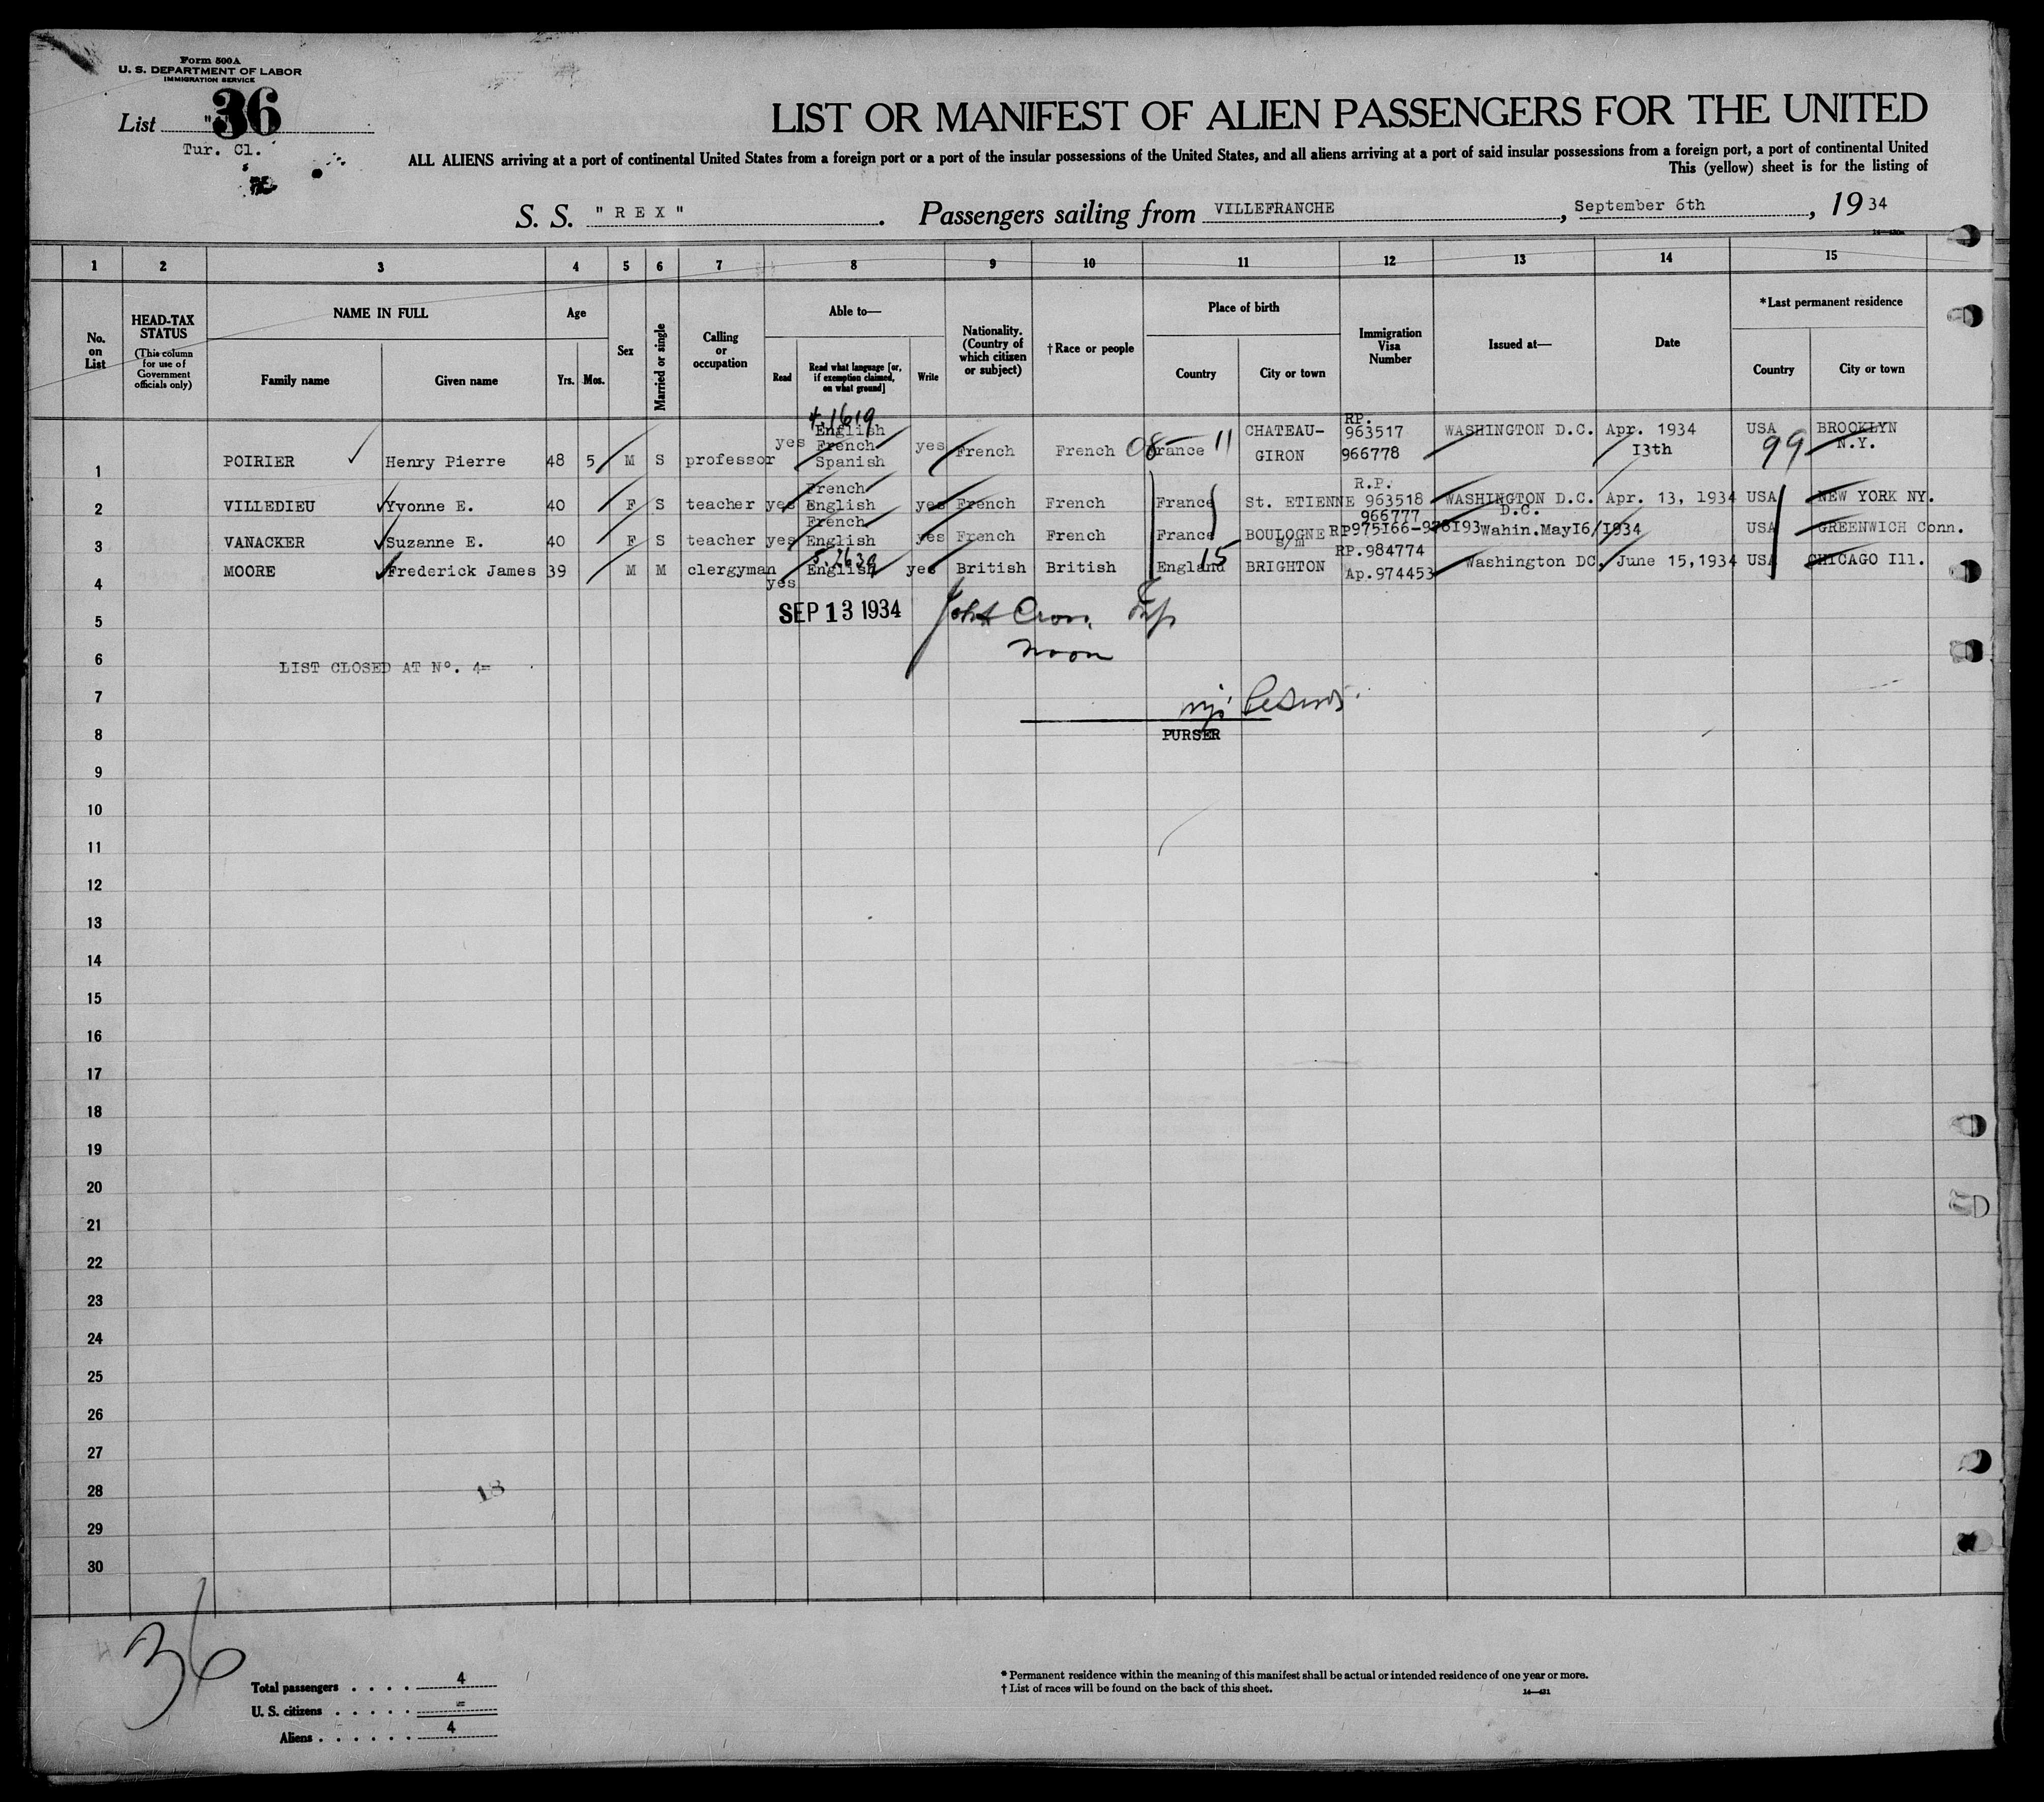 Form 500A
U. S. DEPARTMENT OF LABOR
IMMIGRATION SERVICE
List 36
Tur. Cl.
LIST OR MANIFEST OF ALIEN PASSENGERS FOR THE UNITED
ALL ALIENS arriving at a port of continental United States from a foreign port or a port of the insular possessions of the United States, and all aliens arriving at a port of said insular possessions from a foreign port, a port of continental United
This (yellow) sheet is for the listing of
S. S. "REX". Passengers sailing from VILLEFRANCHE, September 6th, 1934
1 2 3 4 5 6 7 8 9 10 11 12 13 14 15
No. on List
HEAD-TAX STATUS (This column for use of Government officials only)
NAME IN FULL
Family name Given name
Age
Yrs. Mos.
Sex
Married or single
Calling or occupation
Able to—
Read Read what language [or, if exemption claimed, on what ground] Write
Nationality. (Country of which citizen or subject)
†Race or people
Place of birth
Country City or town
Immigration Visa Number
Issued at—
Date
*Last permanent residence
Country City or town
4.1619
1 POIRIER Henry Pierre 48 5 M S professor yes English French Spanish yes French French 08 France 11 CHATEAU-GIRON RP. 963517 966778 WASHINGTON D.C. Apr. 1934 13th USA 99 BROOKLYN N.Y.
2 VILLEDIEU Yvonne E. 40 F S teacher yes French English yes French French France St. ETIENNE R.P. 963518 966777 WASHINGTON D.C. Apr. 13, 1934 USA NEW YORK NY.
3 VANACKER Suzanne E. 40 F S teacher yes French English yes French French France BOULOGNE s/m RP975166-976193 Wahin. D.C. May16/1934 USA GREENWICH Conn.
5.2639
4 MOORE Frederick James 39 M M clergyman yes English yes British British England 15 BRIGHTON RP.984774 Ap.974453 Washington DC, June 15,1934 USA CHICAGO Ill.
5
SEP 13 1934
6
Noon
LIST CLOSED AT No. 4=
7
8
PURSER
9
10
11
12
13
14
15
16
17
18
19
20
21
22
23
24
25
26
27
28
18
29
30
36
Total passengers . . . . 4
U. S. citizens . . . . . =
Aliens . . . . . . 4
* Permanent residence within the meaning of this manifest shall be actual or intended residence of one year or more.
† List of races will be found on the back of this sheet.